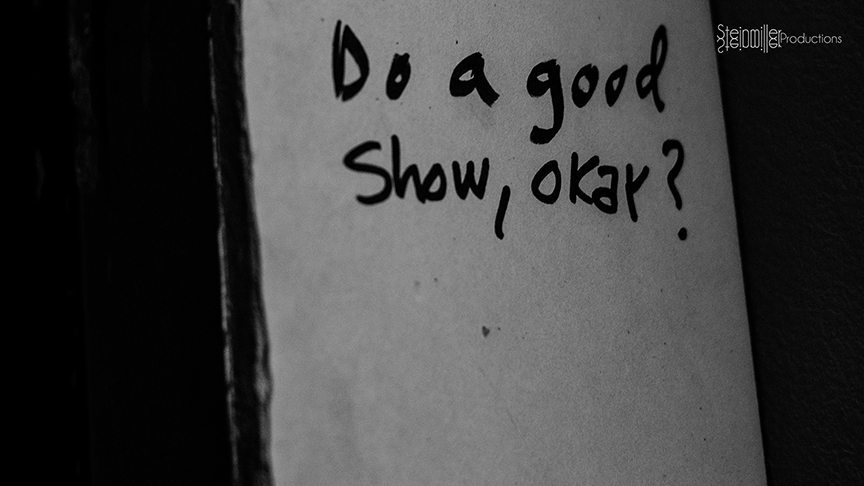 Steinmiller Productions
Do a good
Show, okay?